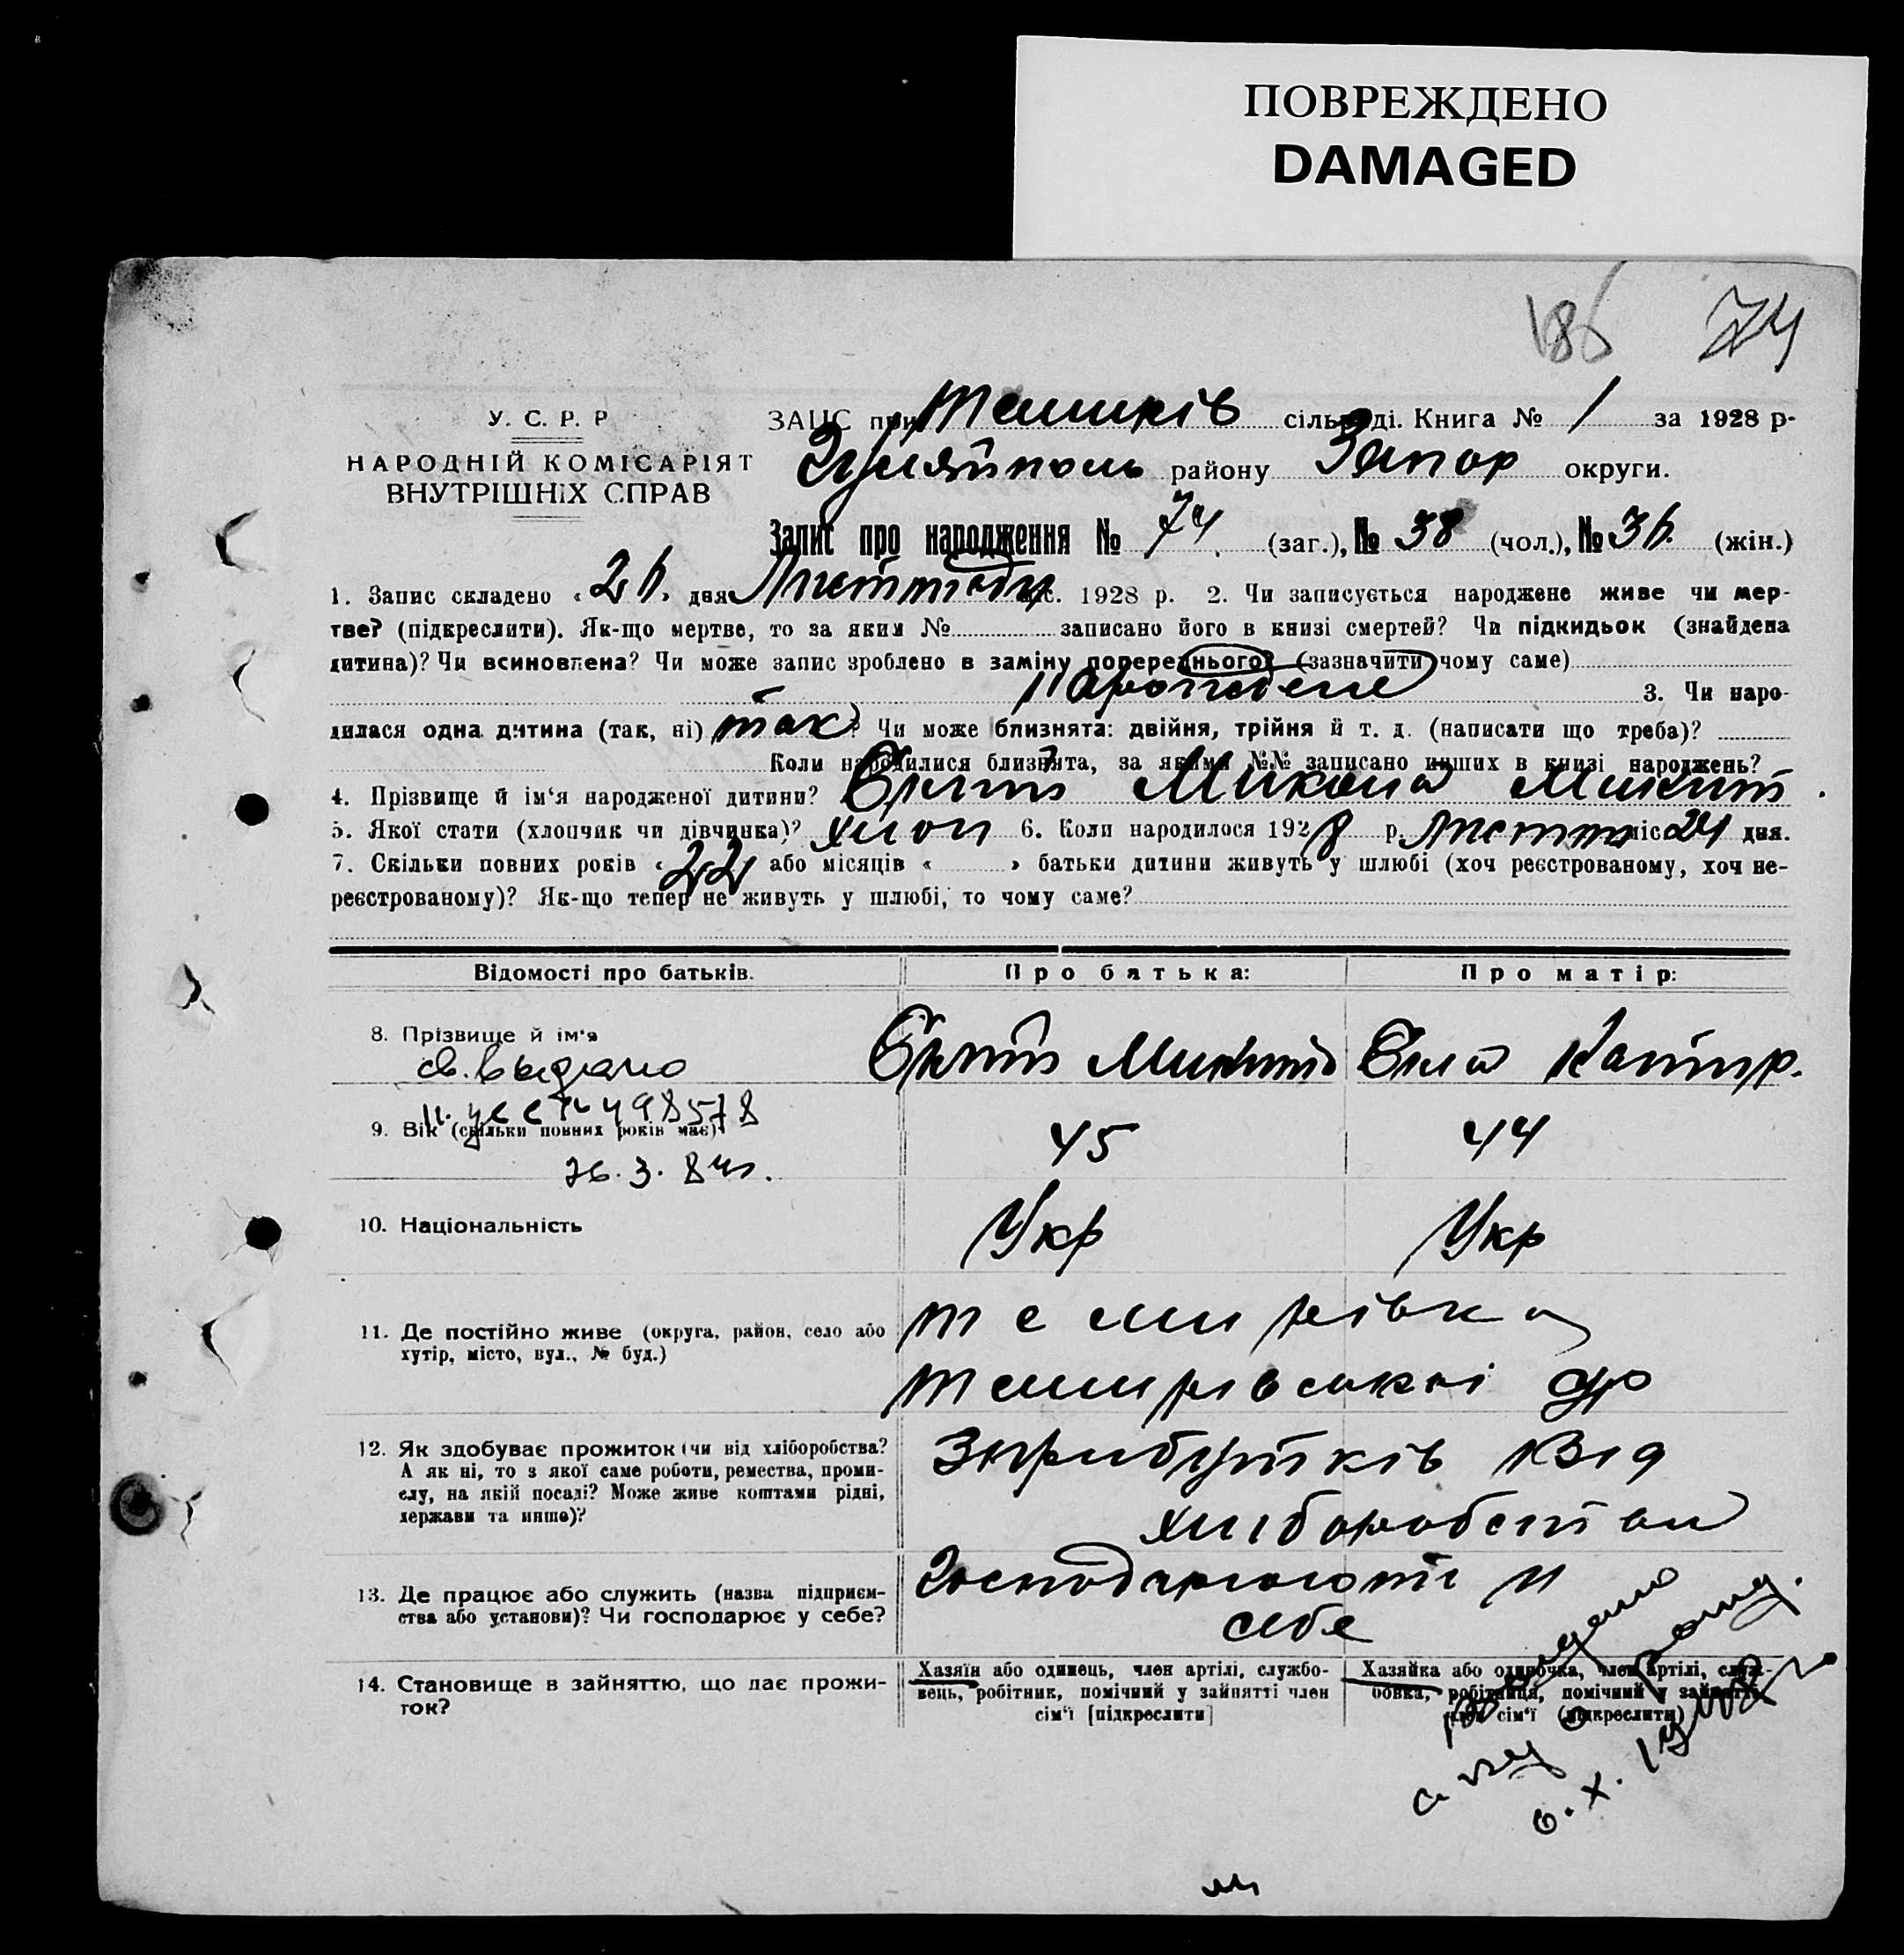 ПОВРЕЖДЕНО
DAMAGED
74
У. С. Р. Р
НАРОДНІЙ КОМІСАРІЯТ
ВНУТРІШНІХ СПРАВ
ЗАГС при сільраді. Книга № 1 за 1928 р-
Гуляйполь району Запор округи.
Запис про народження № 74 (заг.), № 38 (чол.), № 36 (жін.)
1. Запис складено « 26 » дня 1928 р. 2. Чи записується народжене живе чи мер-
тве? (підкреслити). Як-що мертве, то за яким № записано його в книзі смертей? Чи підкидьок (знайдена
дитина)? Чи всиновлена? Чи може запис зроблено в заміну попереднього? (зазначити чому саме)
3. Чи наро-
дилася одна дитина (так, ні) так? Чи може близнята: двійня, трійня й т. д. (написати що треба)?
Коли народилися близнята, за якими №№ записано инших в книзі народжень?
4. Прізвище й ім'я народженої дитини? Микола Микит
5. Якої стати (хлопчик чи дівчинка)? хлоп 6. Коли народилося 1928 р. міс 24 дня.
7. Скільки повних років « 22 » або місяців « » батьки дитини живуть у шлюбі (хоч реєстрованому, хоч не-
реєстрованому)? Як-що тепер не живуть у шлюбі, то чому саме?
Відомості про батьків. Про батька: Про матір:
8. Прізвище й ім'я Микита Катир.
св. выдано
498578
9. Вік (скільки повних років має) 45 44
26.3.84г.
10. Національність Укр Укр
11. Де постійно живе (округа, район, село або
хутір, місто, вул., № буд.)
Темирівка
Темирівської
12. Як здобуває прожиток (чи від хліборобства?
А як ні, то з якої саме роботи, ремества, проми-
слу, на якій посаді? Може живе коштами рідні,
держави та инше)?
Зприбутків від
хліборобства
13. Де працює або служить (назва підприєм-
ства або установи)? Чи господарює у себе?
себе
14. Становище в зайняттю, що дає прожи-
ток?
Хазяїн або одинець, член артілі, службо-
вець, робітник, помічний у зайнятті член
сім'ї [підкреслити]
Хазяйка або одиночка, член артілі, служ-
бовка, робітниця, помічний у зайнятті
член сім'ї (підкреслити)